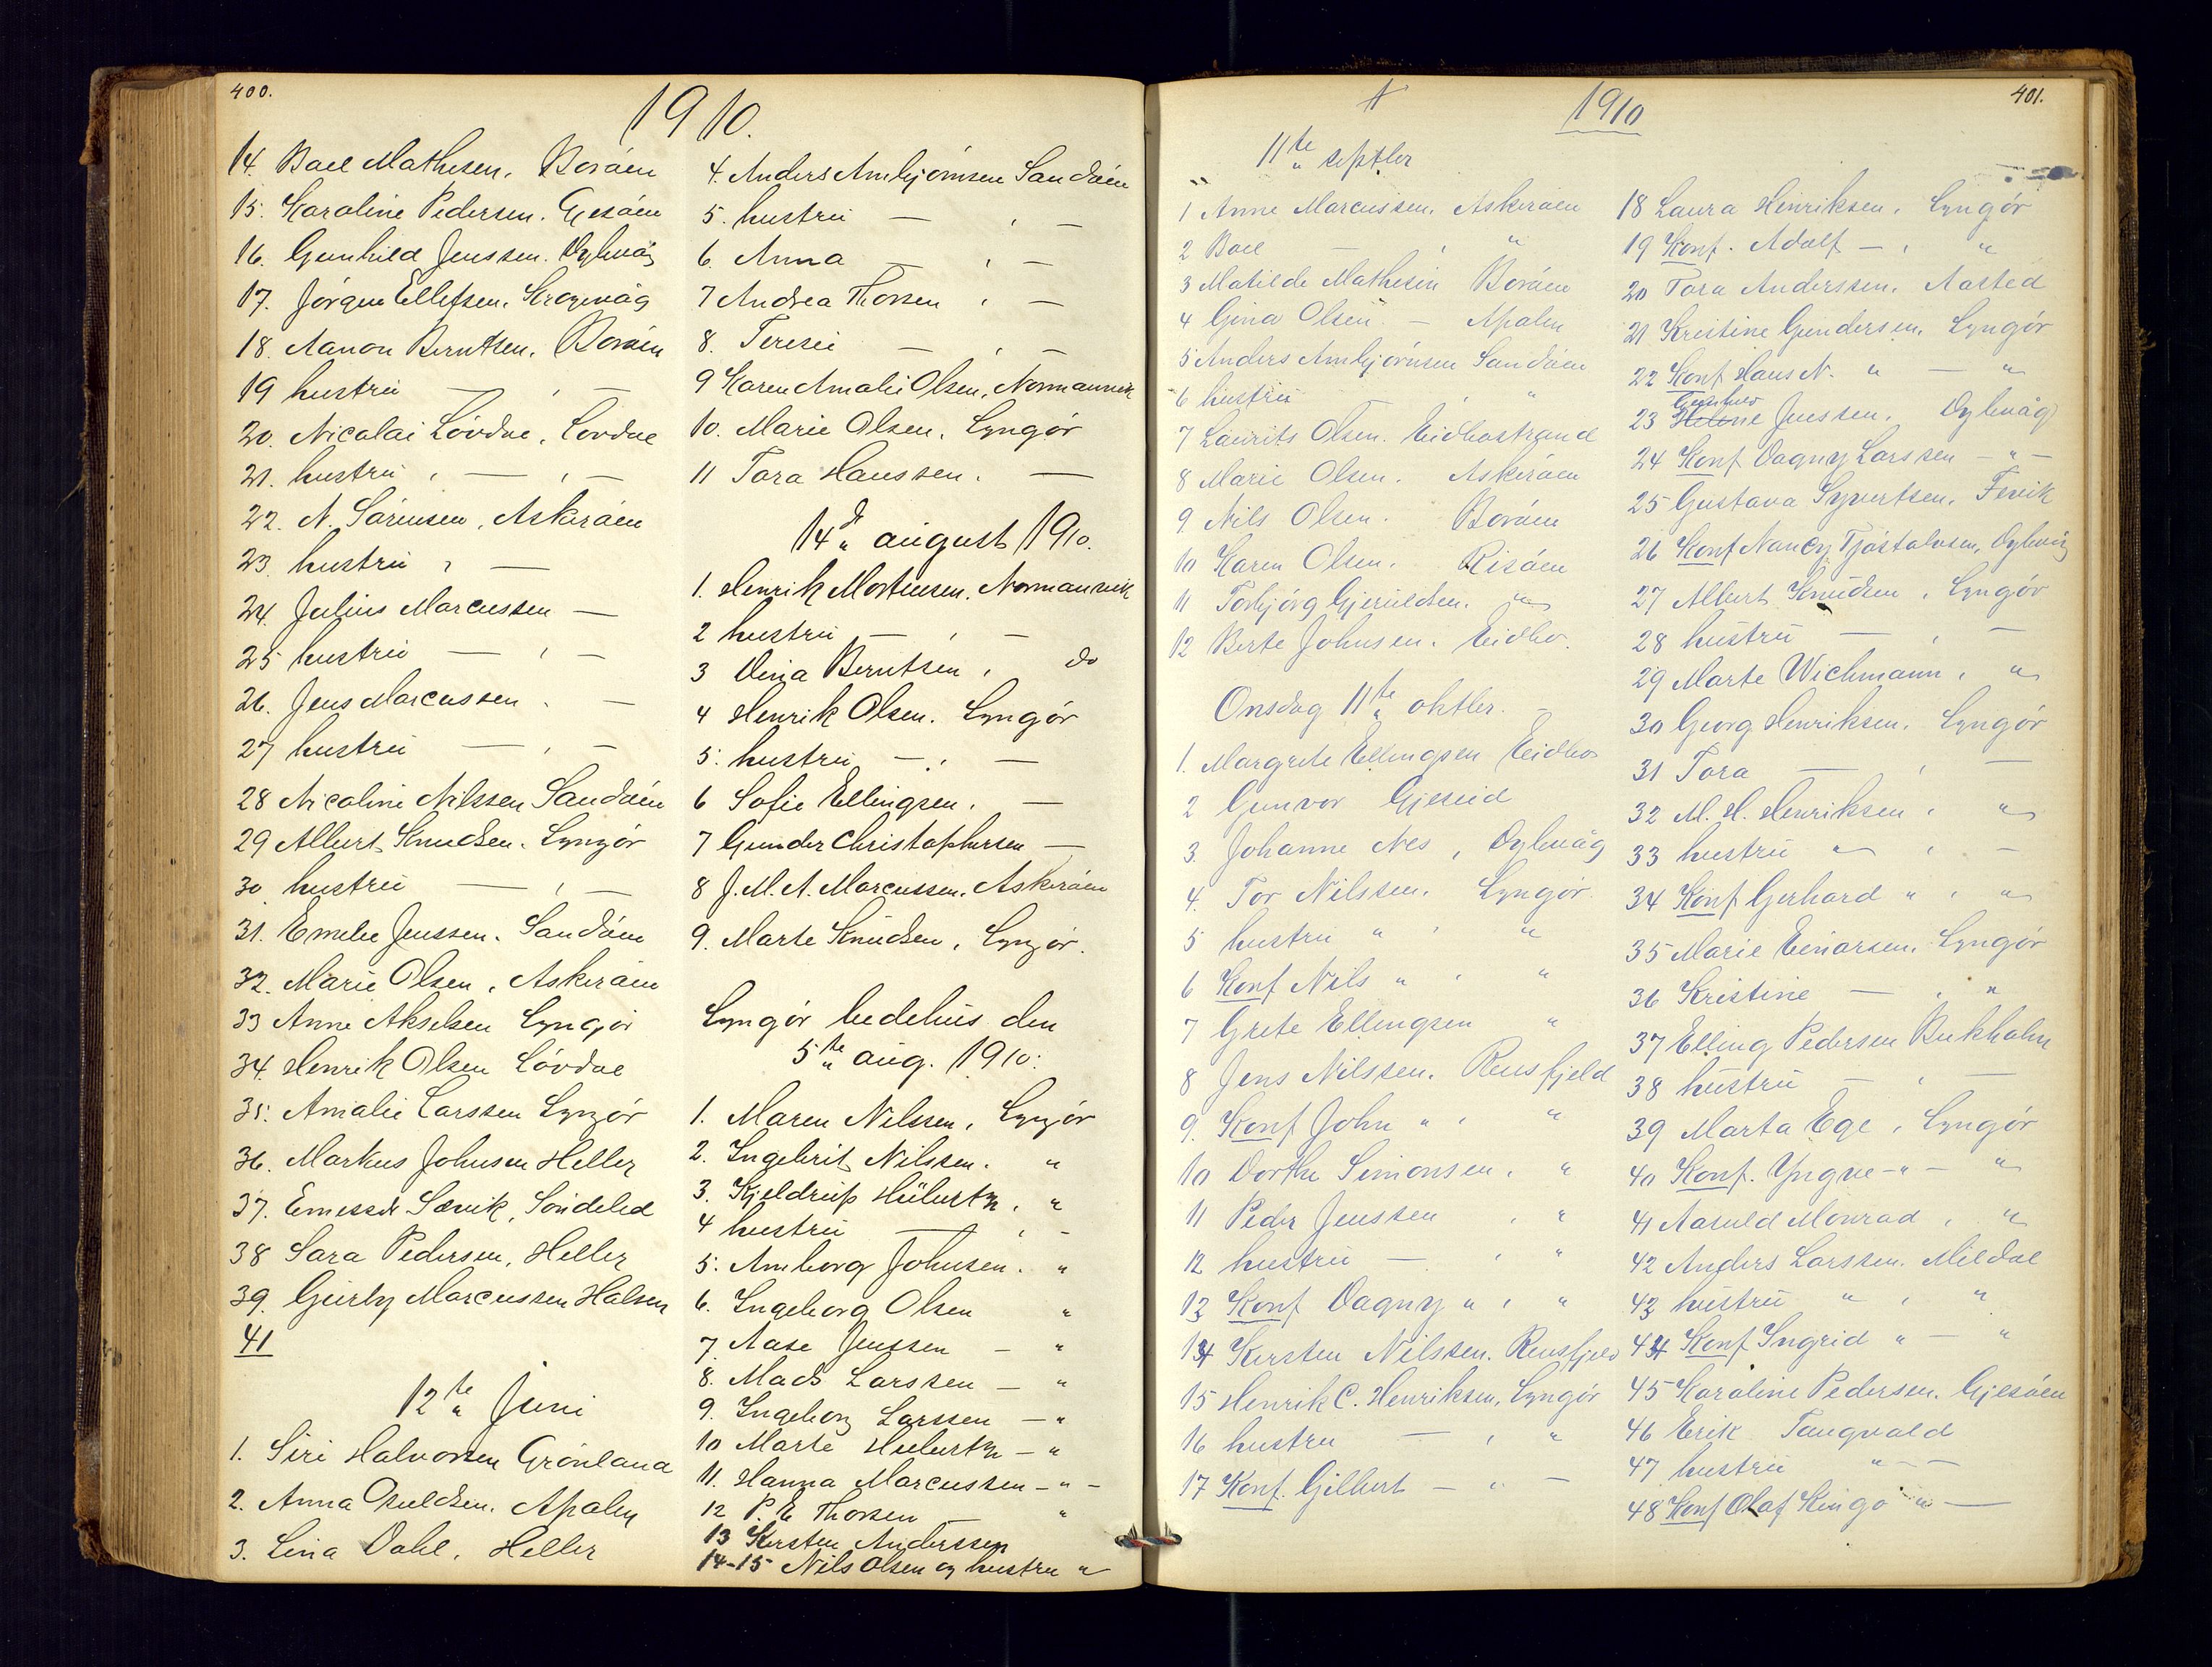 400.
1910.
14. Boel Mathesen. Boröen
15. Karoline Pedersen. Gjesöen
16. Gunhild Jenssen. Dybvåg
17. Jörgen Ellefsen. Krogevåg
18. Aanon Berntsen. Boröen
19 hustru — , —
20. Nicolai Lövdae, Lövdae
21. hustru , — , —
22. N. Sörensen, Askeröen
23. hustru , —
24. Julius Marcussen —
25 hustru — , —
26. Jens Marcussen , —
27 hustru — , —
28 Nicoline Nilssen Sandöen
29 Albert Knudsen. Lyngör
30. hustru — , —
31. Emelie Jenssen. Sandöen
32. Marie Olsen, Askeröen
33 Anne Akselsen Lyngör
34. Henrik Olsen Lövdae
35. Amalie Larssen Lyngör
36. Markus Johnsen Heller
37. Sævik, Söndeled
38 Sara Pedersen, Heller
39. Marcussen Holsen
41
12te Juni
1. Siri Halvorsen Grönland
2. Anna Osuldsen. Apalen
3. Lina Dahl. Heller
4. Anders Arnbjörnsen Sandöen
5. hustru — , —
6. Anna — , —
7 Andrea Thorsen , —
8. Terese — , —
9 Karen Amalie Olsen, Normannvik
10. Marie Olsen, Lyngör
11 Tora Hanssen. —
14de august 1910.
1. Henrik Mortensen. Normannvik
2 hustru — , —
3 Dina Berntsen , do
4 Henrik Olsen. Lyngör
5. hustru — , —
6 Sofie Ellingsen. —
7 Gunder Christophersen —
8 J. M. A. Marcussen. Askeröen
9. Marte Knudsen, Lyngör.
Lyngör bedehus den
5te aug. 1910:
1. Maren Nilssen, Lyngör
2. Ingebrit Nilssen. "
3. Kjeldrup Hübertz, "
4 hustru — , —
5. Anborg Johnsen. "
6. Ingeborg Olsen "
7. Aase Jenssen — "
8. Mads Larssen — "
9. Ingeborg Larssen — "
10 Marte Hübertz — "
11. Hanna Marcussen — " —
12 P. E Thorsen — "
13 Kersten Anderssen
14-15 Nils Olsen og hustru "
401.
1910
11te septbr
1 Anne Marcussen. Askeröen
2 Boel — , "
3 Matilde Mathesen Boröen
4 Gina Olsen — Apalen
5 Anders Arnbjörnsen Sandöen
6 hustru , "
7 Laurits Olsen. Eidbostrand
8 Marie Olsen. Askeröen
9 Nils Olsen. Boröen
10 Karen Olsen. Risöen
11 Torbjörg Gjeruldsen. "
12 Berte Johnsen. Eidbo.
Onsdag 11te oktbr.
1. Margrete Ellingsen Eidbo
2 Gunvor Gjeseid
3. Johanne Nes, Dybvåg
4. Tor Nilssen. Lyngör
5 hustru " , "
6 Konf Nils " , "
7 Grete Ellingsen "
8 Jens Nilssen. Reusfjeld
9. Konf John " , "
10 Dorthe Simonsen. "
11 Peder Jenssen , "
12 hustru — , "
13 Konf Dagny " , "
14 Kersten Nilssen. Reusfjeld
15 Henrik C. Henriksen, Lyngör
16 hustru — , "
17 Konf. Gilbert — " —
18 Laura Henriksen. Lyngör
19 Konf. Adolf — , "
20 Tora Anderssen. Aasted
21 Kristine Gundersen. Lyngör
22 Konf Hans N. " — "
Gunhild
23 Helene Jenssen. Dybvåg
24 Konf Dagny Larssen — " —
25 Gustava Syvertsen. Fevik
26 Konf Nancy Tjöstolvsen, Dybvåg
27 Albert Knudsen, Lyngör
28 hustru — , —
29 Marte Wichmann, "
30 Georg Henriksen. Lyngör
31 Tora — , —
32 M. H. Henriksen , "
33 hustru " , —
34 Konf Gerhard " , "
35 Marie Einarsen, Lyngör
36 Kristine — , "
37 Elling Pedersen Bukholm
38 hustru — , —
39 Marta Ege, Lyngör
40 Konf. Yngve — " — "
41 Aasuld Monrad , "
42 Anders Larssen. Mildal
43 hustru " , "
44 Konf Ingrid " — "
45 Karoline Pedersen. Gjesöen
46 Erik Tangvald
47 hustru " —
48 Konf Olaf Kingo " —